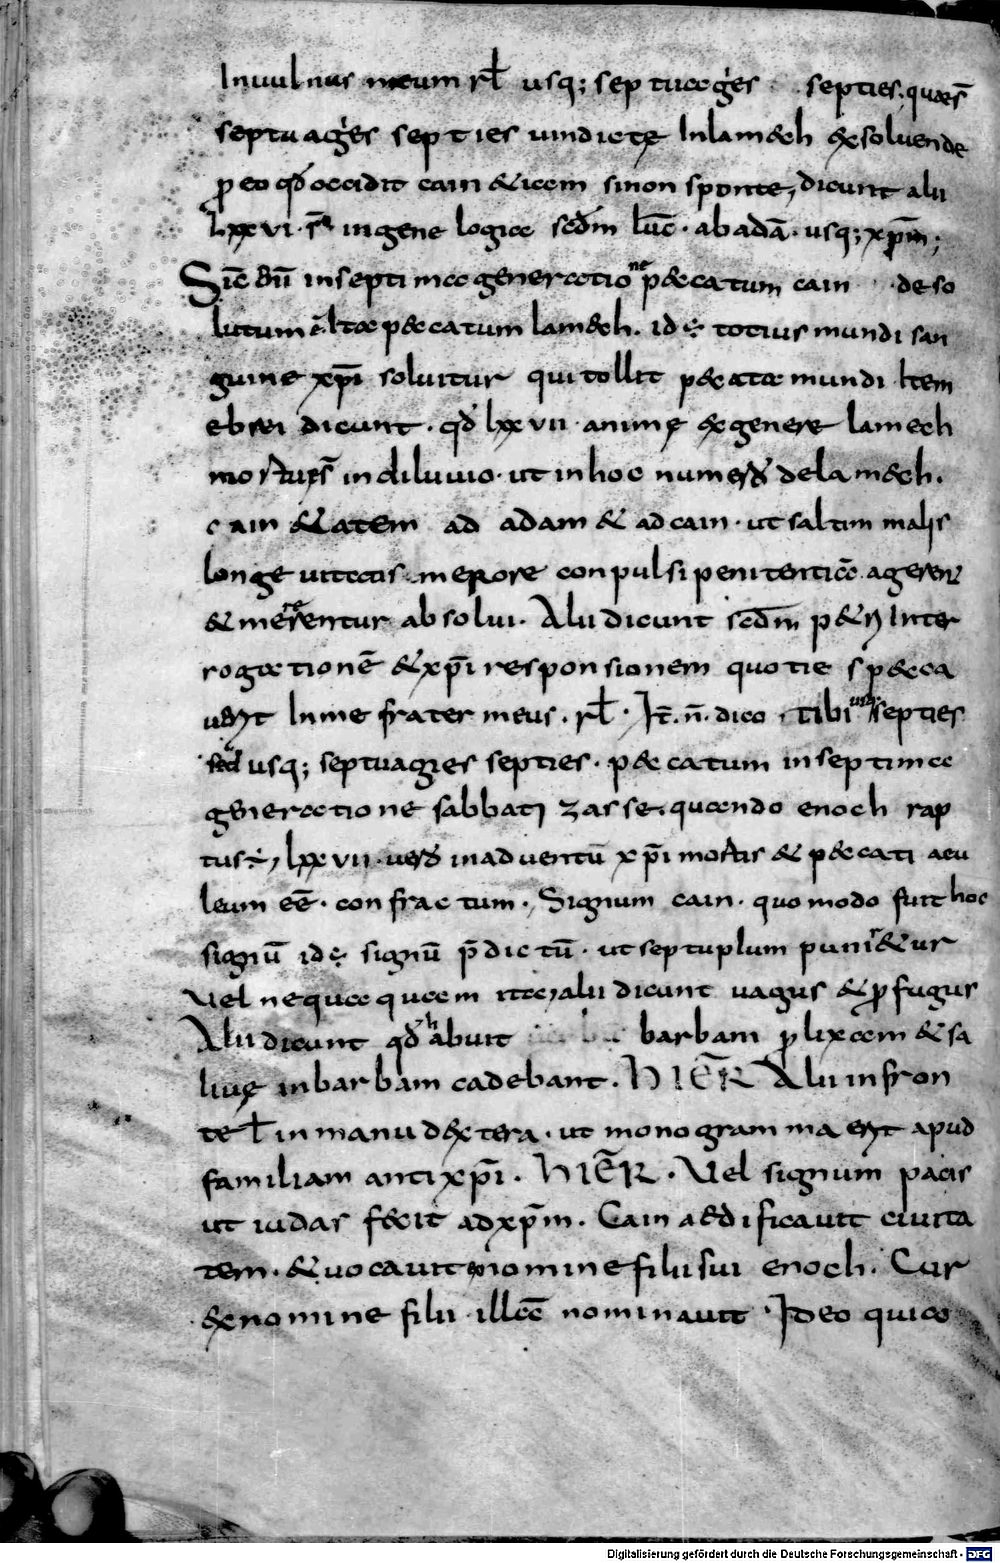 Inuulnus meum rł usq; septuagˀes septies. quaes̄
septuagˀes septies uindictę Inlam&ch &xsoluende
ꝓ eo qđ occidit cain & icem sinon sponte, dicunt alii
Lxxvi. s̄ ingene logice scđm luc̄. abadā. usq; xp̄m;
Sic̄ dū inseptimaa generatione p&catum cain deso
lutum ē łtae p&catum lam&ch. id ÷ totius mundi san
guine xp̄i soluitur qui tollit p&cata mundi Item
ebrei dicunt. qđ lxxvii. animę &xgenere lamech
mortues̄ indiluuio. ut inhoc numero delam&ch.
cain & atem ad adam & adcain. ut saltim malis
longe uitaas merore conpulsi penitentiā agerent
& mererentur absolui. Alii dicunt scđm p&ri Inter
rogationē & xp̄i responsionem quotie s p&ca
uerit Inme frater meus. rł. It̄. n̄. dico tibi usq; septies
sed usq; septuagies septies. p&catum inseptimaa
generatione sabbati zasse. quando enoch rap
tus ÷, lxxvii. uero inaduentū xp̄i mortis & p&cati acu
leum eē. confractum. Signum cain. quomodo fuit hoc
signū id ÷ signū p̄dictū. ut septuplum punir&ur
Vel nequaquam ita, alii dicunt uagus & ꝓfugus
Alii dicunt qđ habuit barbam ꝓlixam & sa
liuę inbarbam cadebant. HIER̄ Alii infron
te ł inmanu d&xtera. ut monogramma erit apud
familiam antixp̄i. HIER̄. Vel signum pacis
ut iudas fecit adxp̄m. Cain aedificauit ciuita
tem. & uocauit nomine filii sui enoch. Cur
&xnomine filii illā nominauit Ideo quia
Digitalisierung gefördert durch die Deutsche Forschungsgemeinschaft - DFG